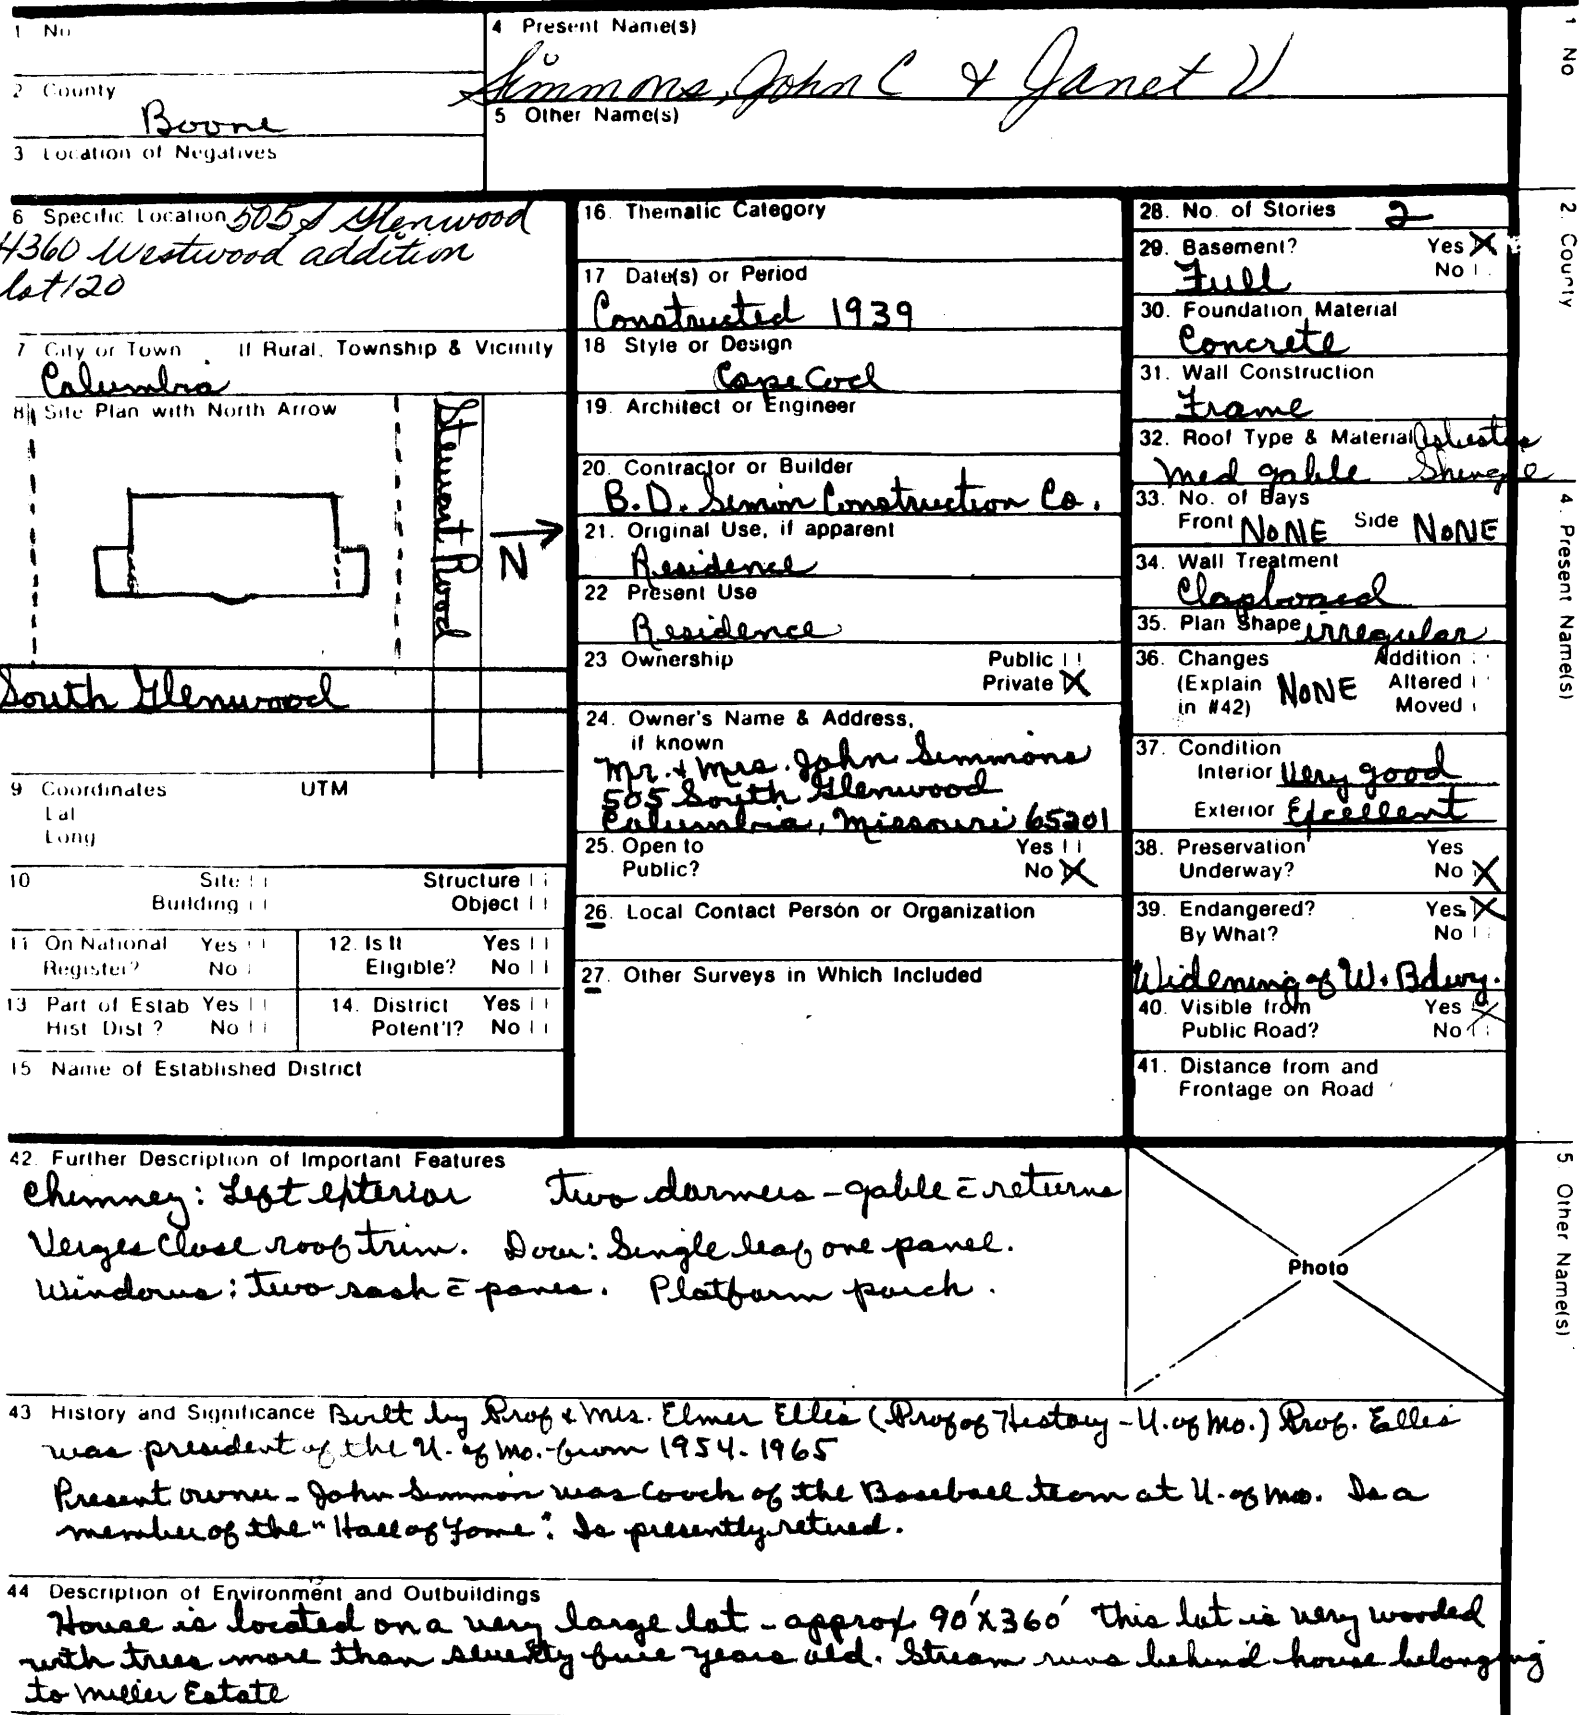 1 No
4 Present Name(s)
Simmons, John C & Janet V
2 County
Boone
5 Other Name(s)
3 Location of Negatives
6 Specific Location 505 S Glenwood
4360 Westwood addition
lot 120
7 City or Town If Rural, Township & Vicinity
Columbia
8 Site Plan with North Arrow
Stewart Road
N
South Glenwood
9 Coordinates UTM
Lat
Long
10 Site Structure
Building Object
11 On National Register? Yes No
12. Is It Eligible? Yes No
13 Part of Estab Hist Dist? Yes No
14. District Potent'l? Yes No
15 Name of Established District
16. Thematic Category
17 Date(s) or Period
Constructed 1939
18 Style or Design
Cape Cod
19. Architect or Engineer
20. Contractor or Builder
B.D. Simon Construction Co.
21. Original Use, if apparent
Residence
22 Present Use
Residence
23 Ownership Public
Private X
24. Owner's Name & Address,
if known
Mr. & Mrs. John Simmons
505 South Glenwood
Columbia, Missouri 65201
25. Open to Yes
Public? No X
26. Local Contact Person or Organization
27. Other Surveys in Which Included
28. No. of Stories 2
29. Basement? Yes X
Full No
30. Foundation Material
Concrete
31. Wall Construction
Frame
32. Roof Type & Material Asbestos
Med gable Shingle
33. No. of Bays
Front NONE Side NONE
34. Wall Treatment
Clapboard
35. Plan Shape irregular
36. Changes Addition
(Explain NONE Altered
in #42) Moved
37. Condition
Interior Very good
Exterior Excellent
38. Preservation Yes
Underway? No X
39. Endangered? Yes X
By What? No
Widening of W. Bdwy.
40. Visible from Yes X
Public Road? No
41. Distance from and
Frontage on Road
42. Further Description of Important Features
Chimney: Left exterior two dormers - gable c̄ returns
Verges close roof trim. Door: Single leaf one panel.
Windows: two sash c̄ panes. Platform porch.
Photo
43 History and Significance Built by Prof & Mrs. Elmer Ellis (Prof of History - U. of Mo.) Prof. Ellis
was president of the U. of Mo. from 1954-1965
Present owner - John Simmon was Coach of the Baseball team at U. of Mo. Is a
member of the "Hall of Fame". Is presently retired.
44 Description of Environment and Outbuildings
House is located on a very large lot - approx 90'X360' this lot is very wooded
with trees more than seventy five years old. Stream runs behind house belonging
to Miller Estate
1 No
2. County
4. Present Name(s)
5. Other Name(s)